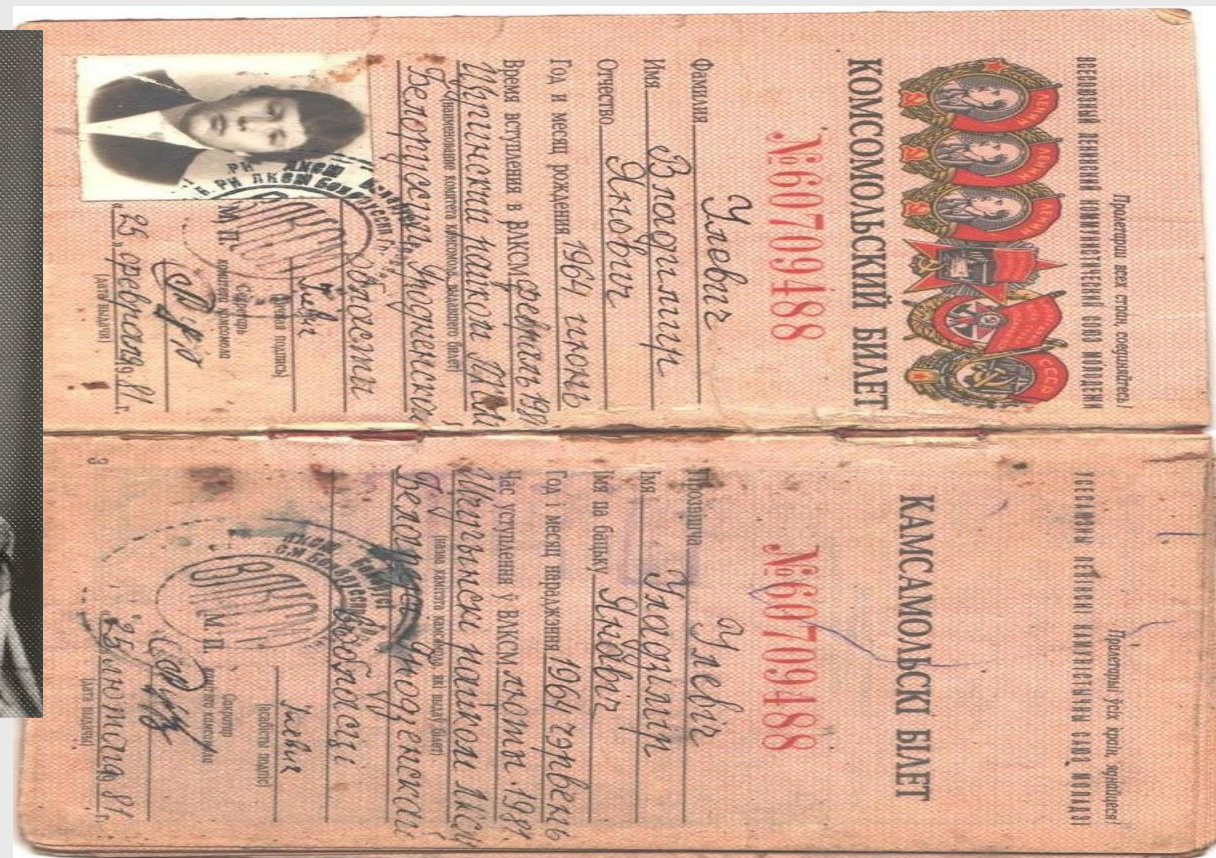 Пролетарии всех стран, соединяйтесь!
ВСЕСОЮЗНЫЙ ЛЕНИНСКИЙ КОММУНИСТИЧЕСКИЙ СОЮЗ МОЛОДЕЖИ
ЛЕНИН
ЛЕНИН
ЛЕНИН
СССР
КОМСОМОЛЬСКИЙ БИЛЕТ
№60709488
Фамилия Улевич
Имя Владимир
Отчество Янович
Год и месяц рождения 1964 июнь
Время вступления в ВЛКСМ февраль 1981
Щучинский райком ЛКСМ
(наименование комитета комсомола, выдавшего билет)
Белоруссии, Гродненской
области
Улевич
(личная подпись)
М П. Секретарь
комитета комсомола
„25„ февраля 1981 г.
(дата выдачи)
ВЛКСМ
Пралетарыі ўсіх краін, яднайцеся!
УСЕСАЮЗНЫ ЛЕНІНСКІ КАМУНІСТЫЧНЫ САЮЗ МОЛАДЗІ
КАМСАМОЛЬСКІ БІЛЕТ
№60709488
Прозвішча Улевіч
Імя Уладзімір
Імя па бацьку Янавіч
Год і месяц нараджэння 1964 чэрвень
Час уступлення ў ВЛКСМ люты 1981
Шчучынскі райком ЛКСМ
(назва камітэта камсамола, які выдаў білет)
Беларусі, Гродзенскай
вобласці
Улевич
(асабісты подпіс)
М П. Сакратар
камітэта камсамола
„25„ лютага 1981 г.
(дата выдачы)
ВЛКСМ
3